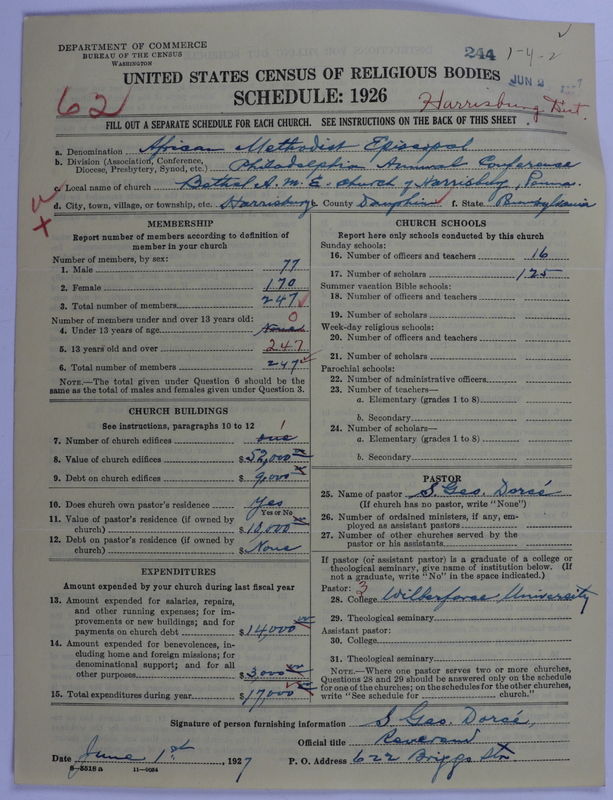 DEPARTMENT OF COMMERCE
BUREAU OF THE CENSUS
WASHINGTON
244 1-4-2
JUN 2 1927
UNITED STATES CENSUS OF RELIGIOUS BODIES
SCHEDULE: 1926
62
Harrisburg Dist.
FILL OUT A SEPARATE SCHEDULE FOR EACH CHURCH. SEE INSTRUCTIONS ON THE BACK OF THIS SHEET
a. Denomination African Methodist Episcopal
b. Division (Association, Conference, Diocese, Presbytery, Synod, etc.) Philadelphia Annual Conference
c. Local name of church Bethel A. M. E. Church of Harrisburg, Penna.
d. City, town, village, or township, etc. Harrisburg e. County Dauphin f. State Pennsylvania
MEMBERSHIP
Report number of members according to definition of
member in your church
Number of members, by sex:
1. Male 77
2. Female 170
3. Total number of members 247
Number of members under and over 13 years old: 0
4. Under 13 years of age None
5. 13 years old and over 247
6. Total number of members 247
NOTE.—The total given under Question 6 should be the
same as the total of males and females given under Question 3.
CHURCH BUILDINGS
See instructions, paragraphs 10 to 12 1
7. Number of church edifices one
8. Value of church edifices $52,000 xx
9. Debt on church edifices $9,000 xx
10. Does church own pastor's residence Yes
Yes or No
11. Value of pastor's residence (if owned by
church) $10,000
12. Debt on pastor's residence (if owned by
church) $None
EXPENDITURES
Amount expended by your church during last fiscal year
13. Amount expended for salaries, repairs,
and other running expenses; for im-
provements or new buildings; and for
payments on church debt $14000
14. Amount expended for benevolences, in-
cluding home and foreign missions; for
denominational support; and for all
other purposes $3000
15. Total expenditures during year $17,000
CHURCH SCHOOLS
Report here only schools conducted by this church
Sunday schools:
16. Number of officers and teachers 16
17. Number of scholars 125
Summer vacation Bible schools:
18. Number of officers and teachers
19. Number of scholars
Week-day religious schools:
20. Number of officers and teachers
21. Number of scholars
Parochial schools:
22. Number of administrative officers
23. Number of teachers—
a. Elementary (grades 1 to 8)
b. Secondary
24. Number of scholars—
a. Elementary (grades 1 to 8)
b. Secondary
PASTOR
25. Name of pastor S. Geo. Dorcé
(If church has no pastor, write "None")
26. Number of ordained ministers, if any, em-
ployed as assistant pastors
27. Number of other churches served by the
pastor or his assistants
If pastor (or assistant pastor) is a graduate of a college or
theological seminary, give name of institution below. (If
not a graduate, write "No" in the space indicated.)
Pastor: 3
28. College Wilberforce University
29. Theological seminary
Assistant pastor:
30. College
31. Theological seminary
NOTE.—Where one pastor serves two or more churches,
Questions 28 and 29 should be answered only on the schedule
for one of the churches; on the schedules for the other churches,
write "See schedule for church."
Signature of person furnishing information S Geo. Dorcé,
Official title Reverend
Date June 1st, 1927 P. O. Address 622 Briggs Str
8—5518 a 11—9034